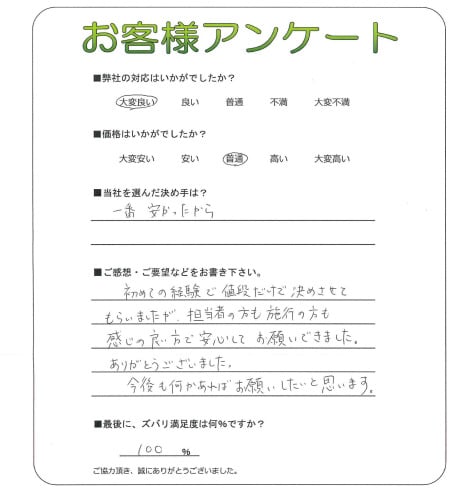 お客様アンケート
■弊社の対応はいかがでしたか？
大変良い 良い 普通 不満 大変不満
■価格はいかがでしたか？
大変安い 安い 普通 高い 大変高い
■当社を選んだ決め手は？
一番 安かったから
■ご感想・ご要望などをお書き下さい。
初めての経験で値段だけで決めさせて
もらいましたが、担当者の方も施行の方も
感じの良い方で安心してお願いできました。
ありがとうございました。
今後も何かあればお願いしたいと思います。
■最後に、ズバリ満足度は何％ですか？
100 ％
ご協力頂き、誠にありがとうございました。